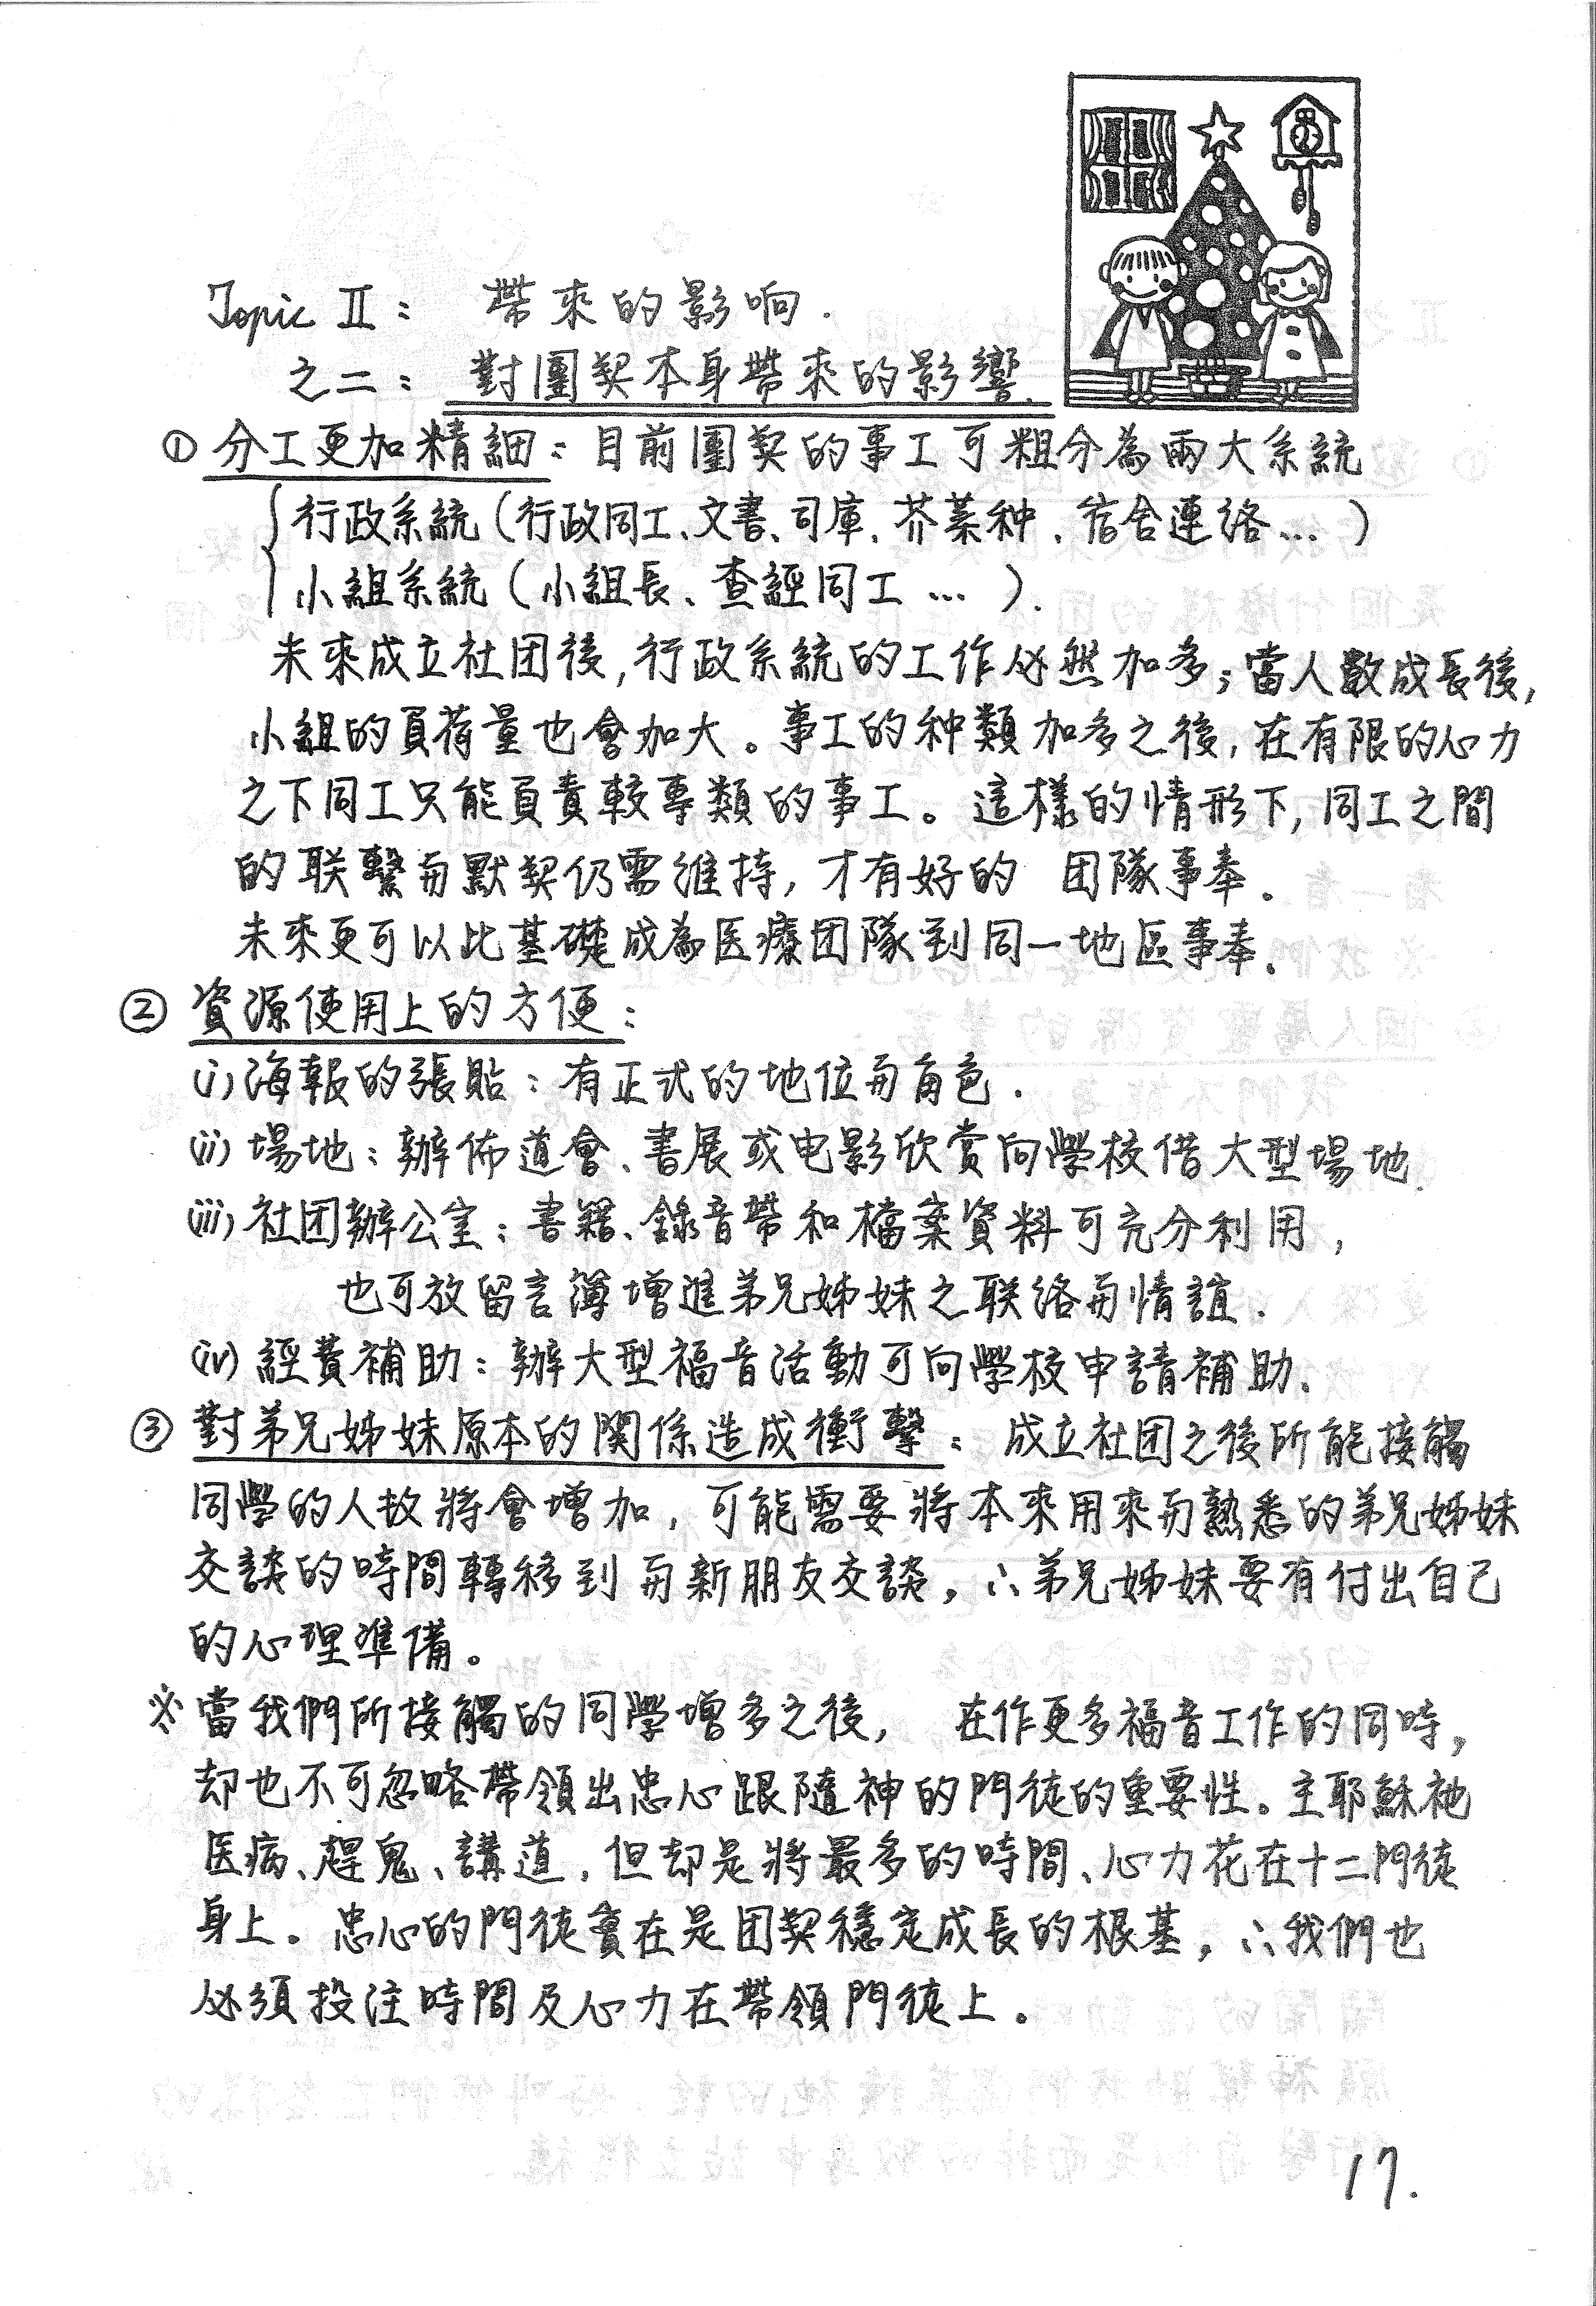 Topic II： 帶來的影响.
之二： 對團契本身帶來的影響.
① 分工更加精細：目前團契的事工可粗分為兩大系統
行政系統(行政同工、文書、司庫、芥菜种、宿舍連絡…)
小組系統(小組長、查經同工…).
未來成立社团後,行政系統的工作必然加多;當人數成長後,
小組的負荷量也會加大。事工的种類加多之後,在有限的心力
之下同工只能負責較專類的事工。這樣的情形下,同工之間
的联繫与默契仍需維持,才有好的 团隊事奉.
未來更可以比基礎成為医療团隊到同一地區事奉.
② 資源使用上的方便：
(i)海報的張貼：有正式的地位与角色.
(ii)場地：辦佈道會、書展或电影欣賞向學校借大型場地.
(iii)社团辦公室：書籍、錄音帶和檔案資料可充分利用,
也可放留言簿增進弟兄姊妹之联絡与情誼.
(iv)經費補助：辦大型福音活動可向學校申請補助.
③ 對弟兄姊妹原本的關係造成衝擊：成立社团之後所能接觸
同學的人故將會增加,可能需要將本來用來与熟悉的弟兄姊妹
交談的時間轉移到与新朋友交談,∴弟兄姊妹要有付出自己
的心理準備。
※當我們所接觸的同學增多之後, 在作更多福音工作的同時,
却也不可忽略帶領出忠心跟隨神的門徒的重要性。主耶穌祂
医病、趕鬼、講道,但却是將最多的時間、心力花在十二門徒
身上。忠心的門徒實在是团契穩定成長的根基,∴我們也
必須投注時間及心力在帶領門徒上。
17.